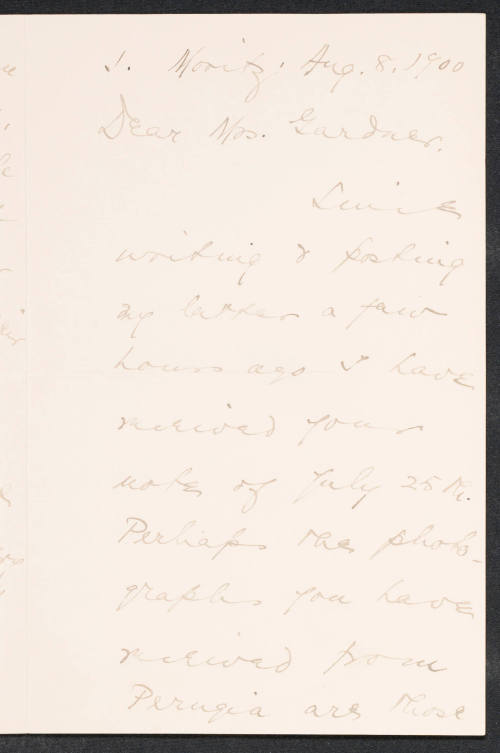 S. Moritz. Aug. 8. 1900
Dear Mrs. Gardner.
Since
writing & posting
my letter a few
hours ago I have
received your
note of July 25th.
Perhaps the photo-
graphs you have
received from
Perugia are those